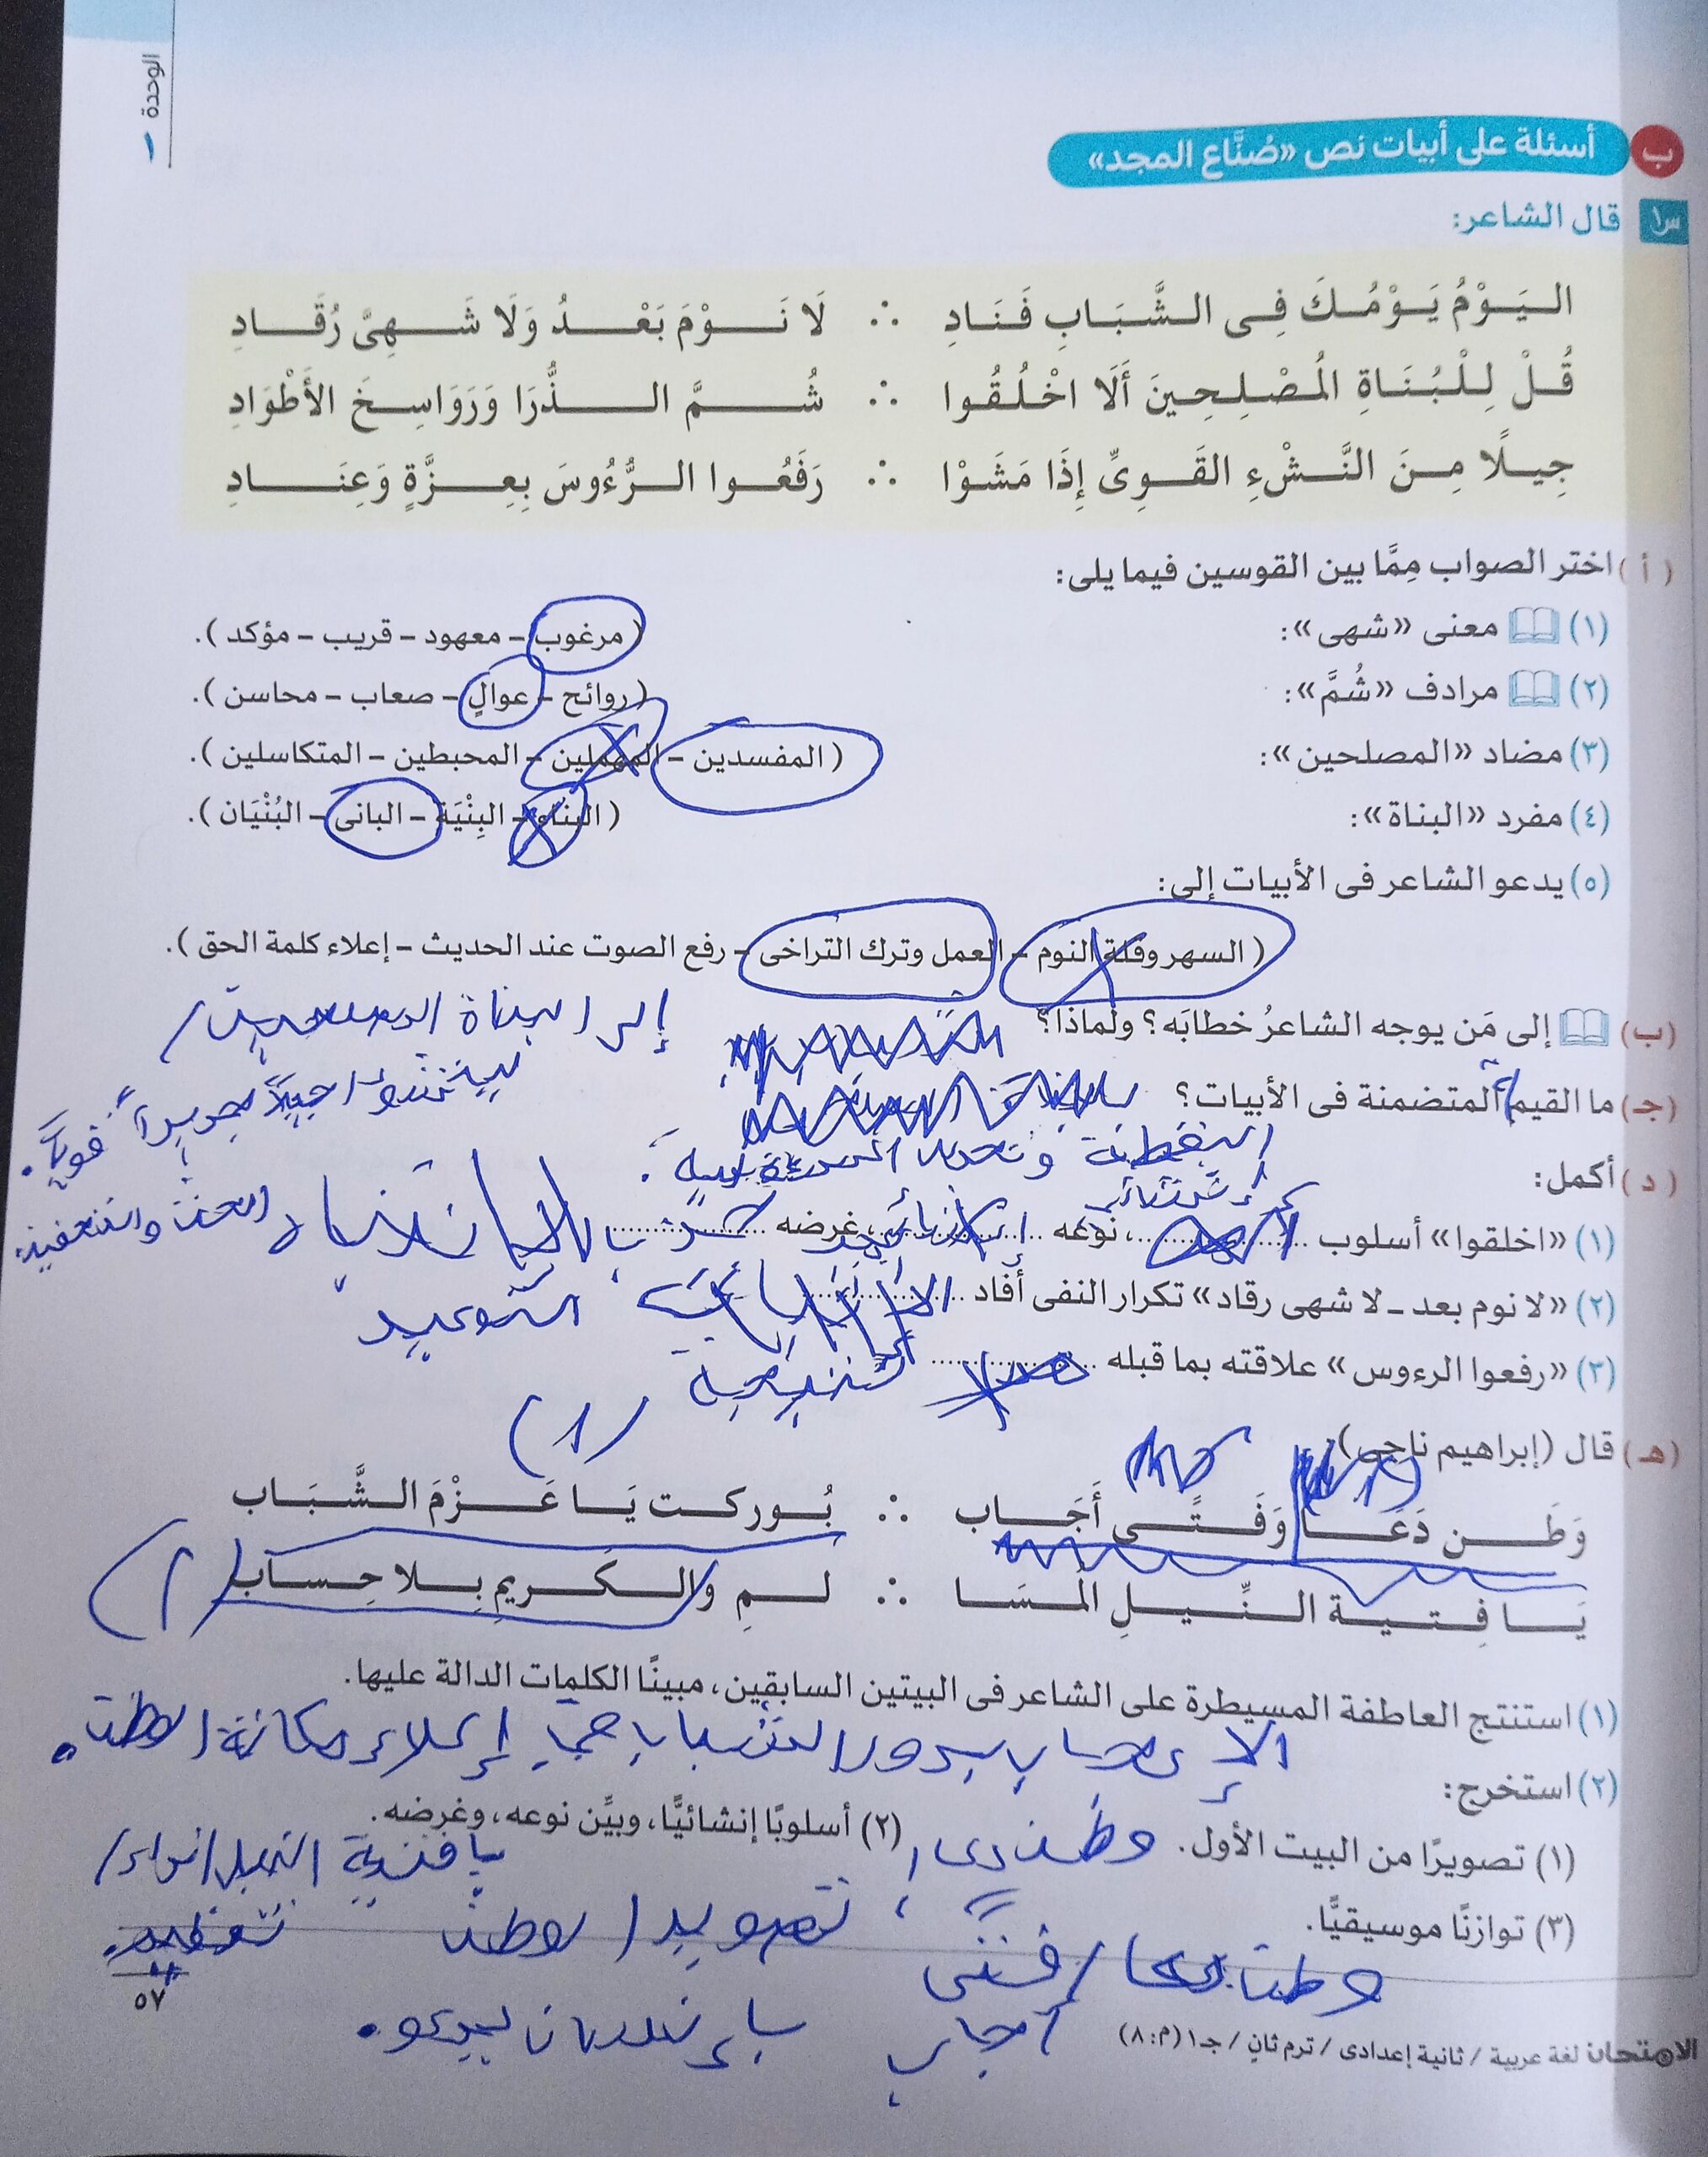 الوحدة ١
ب أسئلة على أبيات نص «صُنَّاع المجد»
س١ قال الشاعر:
اليَوْمُ يَوْمُكَ فِى الشَّبَابِ فَنَادِ ∴ لَا نَوْمَ بَعْدُ وَلَا شَهِىَّ رُقَادِ
قُلْ لِلْبُنَاةِ المُصْلِحِينَ أَلَا اخْلُقُوا ∴ شُمَّ الذُّرَا وَرَوَاسِخَ الأَطْوَادِ
جِيلًا مِنَ النَّشْءِ القَوِىِّ إِذَا مَشَوْا ∴ رَفَعُوا الرُّءُوسَ بِعِزَّةٍ وَعِنَادِ
(أ) اختر الصواب مِمَّا بين القوسين فيما يلى:
(١) معنى «شهى»: (مرغوب – معهود – قريب – مؤكد).
(٢) مرادف «شُمَّ»: (روائح – عوالٍ – صعاب – محاسن).
(٣) مضاد «المصلحين»: (المفسدين – المهملين – المحبطين – المتكاسلين).
(٤) مفرد «البناة»: (البناء – البِنْيَة – البانى – البُنْيَان).
(٥) يدعو الشاعر فى الأبيات إلى:
(السهر وقلة النوم – العمل وترك التراخى – رفع الصوت عند الحديث – إعلاء كلمة الحق).
(ب) إلى مَن يوجه الشاعرُ خطابَه؟ ولماذا؟ إلى البناة المصلحين /
لينشئوا جيلاً جديداً قوياً.
(جـ) ما القيمة المتضمنة فى الأبيات؟
اليقظة وتحمل المسئولية.
(د) أكمل:
(١) «اخلقوا» أسلوب إنشائى، نوعه أمر، غرضه الحث والتحفيز
(٢) «لا نوم بعد – لا شهى رقاد» تكرار النفى أفاد التوكيد
(٣) «رفعوا الرءوس» علاقته بما قبله نتيجة
(هـ) قال (إبراهيم ناجى): (١)
وَطَن دَعَا وَفَتًى أَجَاب ∴ بُوركت يَا عَزْمَ الشَّبَاب
يَا فِتية النِّيلِ المُسَا ∴ لمِ والكَريمِ بِلا حِسَاب (٢)
(١) استنتج العاطفة المسيطرة على الشاعر فى البيتين السابقين، مبينًا الكلمات الدالة عليها.
الإعجاب بدور الشباب فى إعلاء مكانة الوطن.
(٢) استخرج:
(١) تصويرًا من البيت الأول. وطن دعا، (٢) أسلوبًا إنشائيًّا، وبيِّن نوعه، وغرضه.
يا فتية النيل / نداء /
تصوير الوطن
تعظيم.
(٣) توازنًا موسيقيًّا.
وطن دعا / فتى
أجاب
بإنسان يدعو.
٥٧
الامتحان لغة عربية / ثانية إعدادى / ترم ثانٍ / جـ١ (م: ٨)